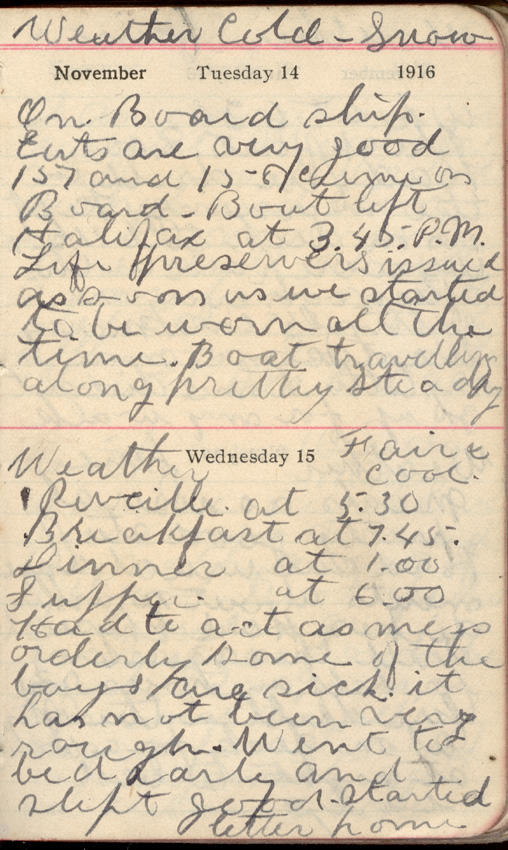 Weather Cold - Snow
November Tuesday 14 1916
On Board ship.
Eats are very good
157 and 158 came on
Board - Boat left
Halifax at 3.45. P.M.
Life preservers issued
as soon as we started
to be worn all the
time. Boat travelling
along pretty steady
Wednesday 15
Weather Fair &
cool.
Reveille at 5.30
Breakfast at 7.45.
Dinner at 1.00
Supper at 6.00
Had to act as mess
orderly some of the
boys are sick. it
has not been very
rough. Went to
bed early and
slept good. started
letter home